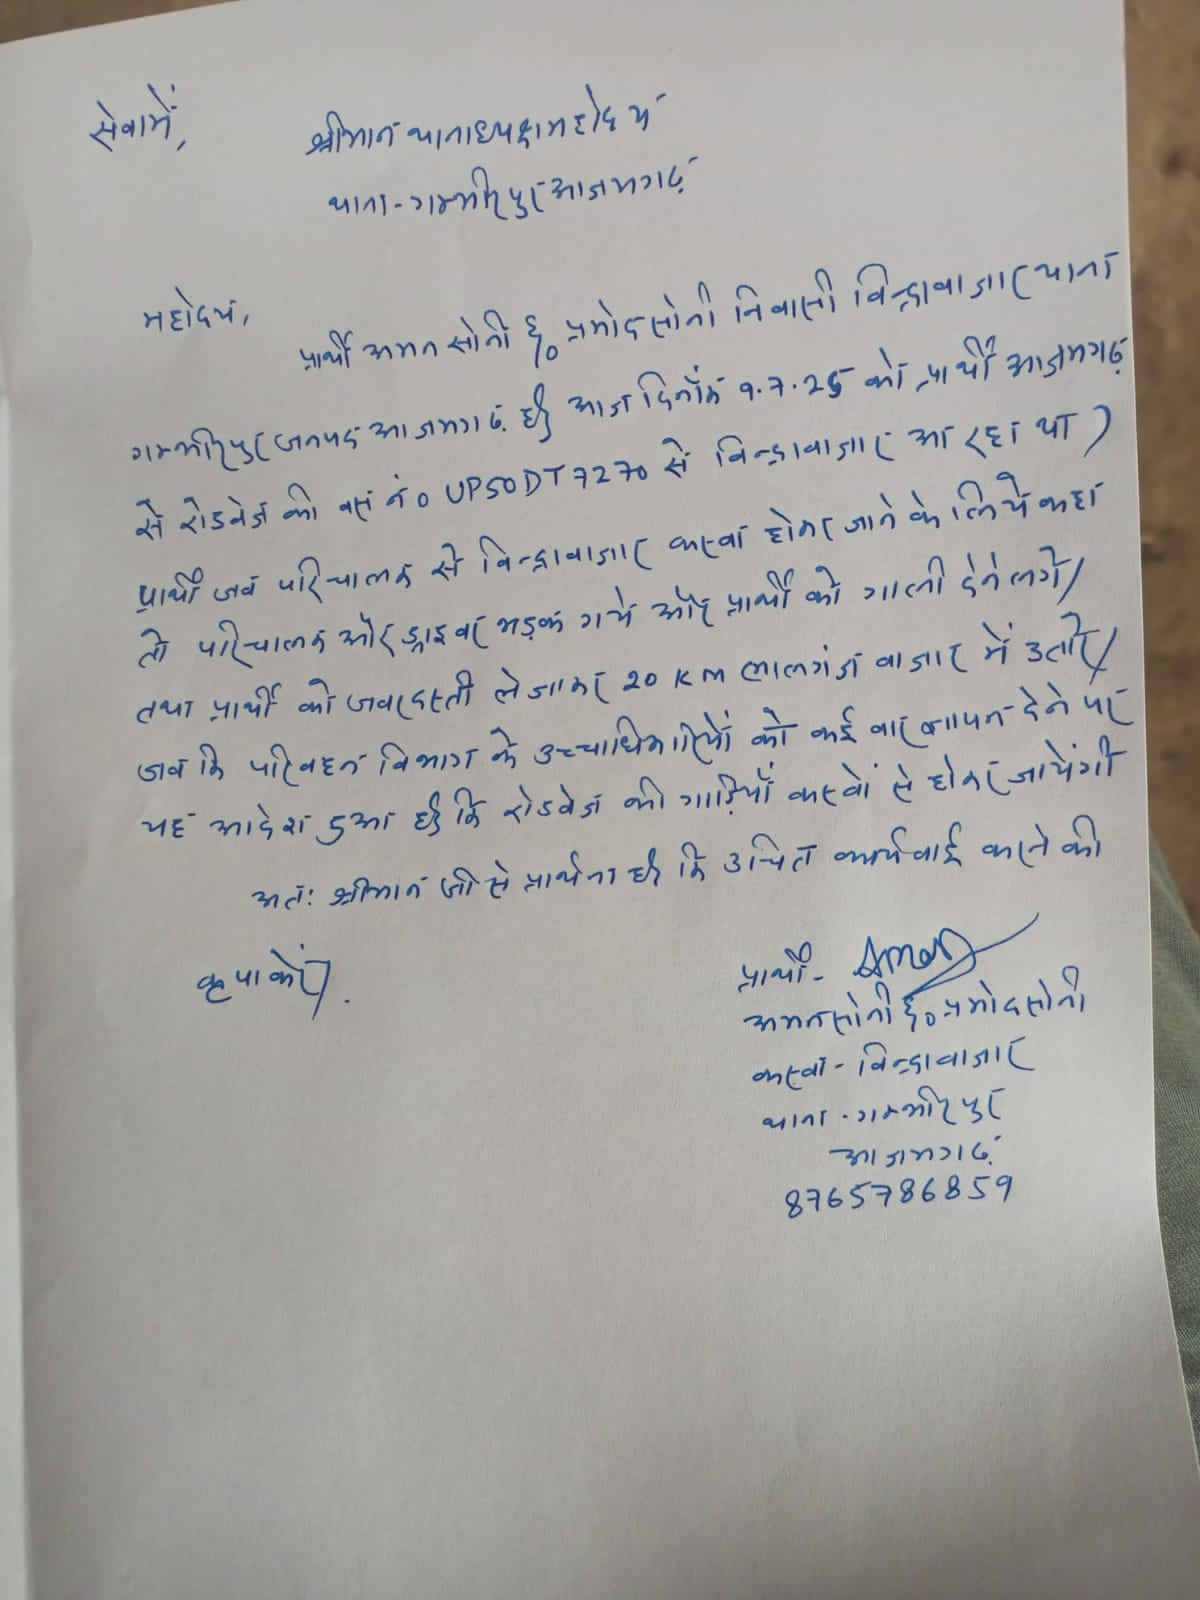 सेवामें,
श्रीमान थानाध्यक्ष महोदय
थाना - गम्भीरपुर आजमगढ़
महोदय,
प्रार्थी अमन सोनी S/o प्रमोद सोनी निवासी विन्द्राबाजार थाना
गम्भीरपुर जनपद आजमगढ़ है आज दिनाँक 9.7.25 को प्रार्थी आजमगढ़
से रोडवेज की बस नं० UP50DT7270 से विन्द्राबाजार आ रहा था)
प्रार्थी जब परिचालक से विन्द्राबाजार कस्बा होकर जाने के लिये कहा
तो परिचालक और ड्राइवर भड़क गये और प्रार्थी को गाली देने लगे/
तथा प्रार्थी को जबरदस्ती ले जाकर 20 KM लालगंज बाजार में उतारे/
जब कि परिवहन विभाग के उच्चाधिकारियों को कई बार ज्ञापन देने पर
यह आदेश हुआ है कि रोडवेज की गाड़ियाँ कस्बों से होकर जायेंगी
अतः श्रीमान जी से प्रार्थना है कि उचित कार्यवाई करने की
कृपा करें/.
प्रार्थी - Aman
अमन सोनी S/o प्रमोद सोनी
कस्बा - विन्द्राबाजार
थाना - गम्भीरपुर
आजमगढ़
8765786859